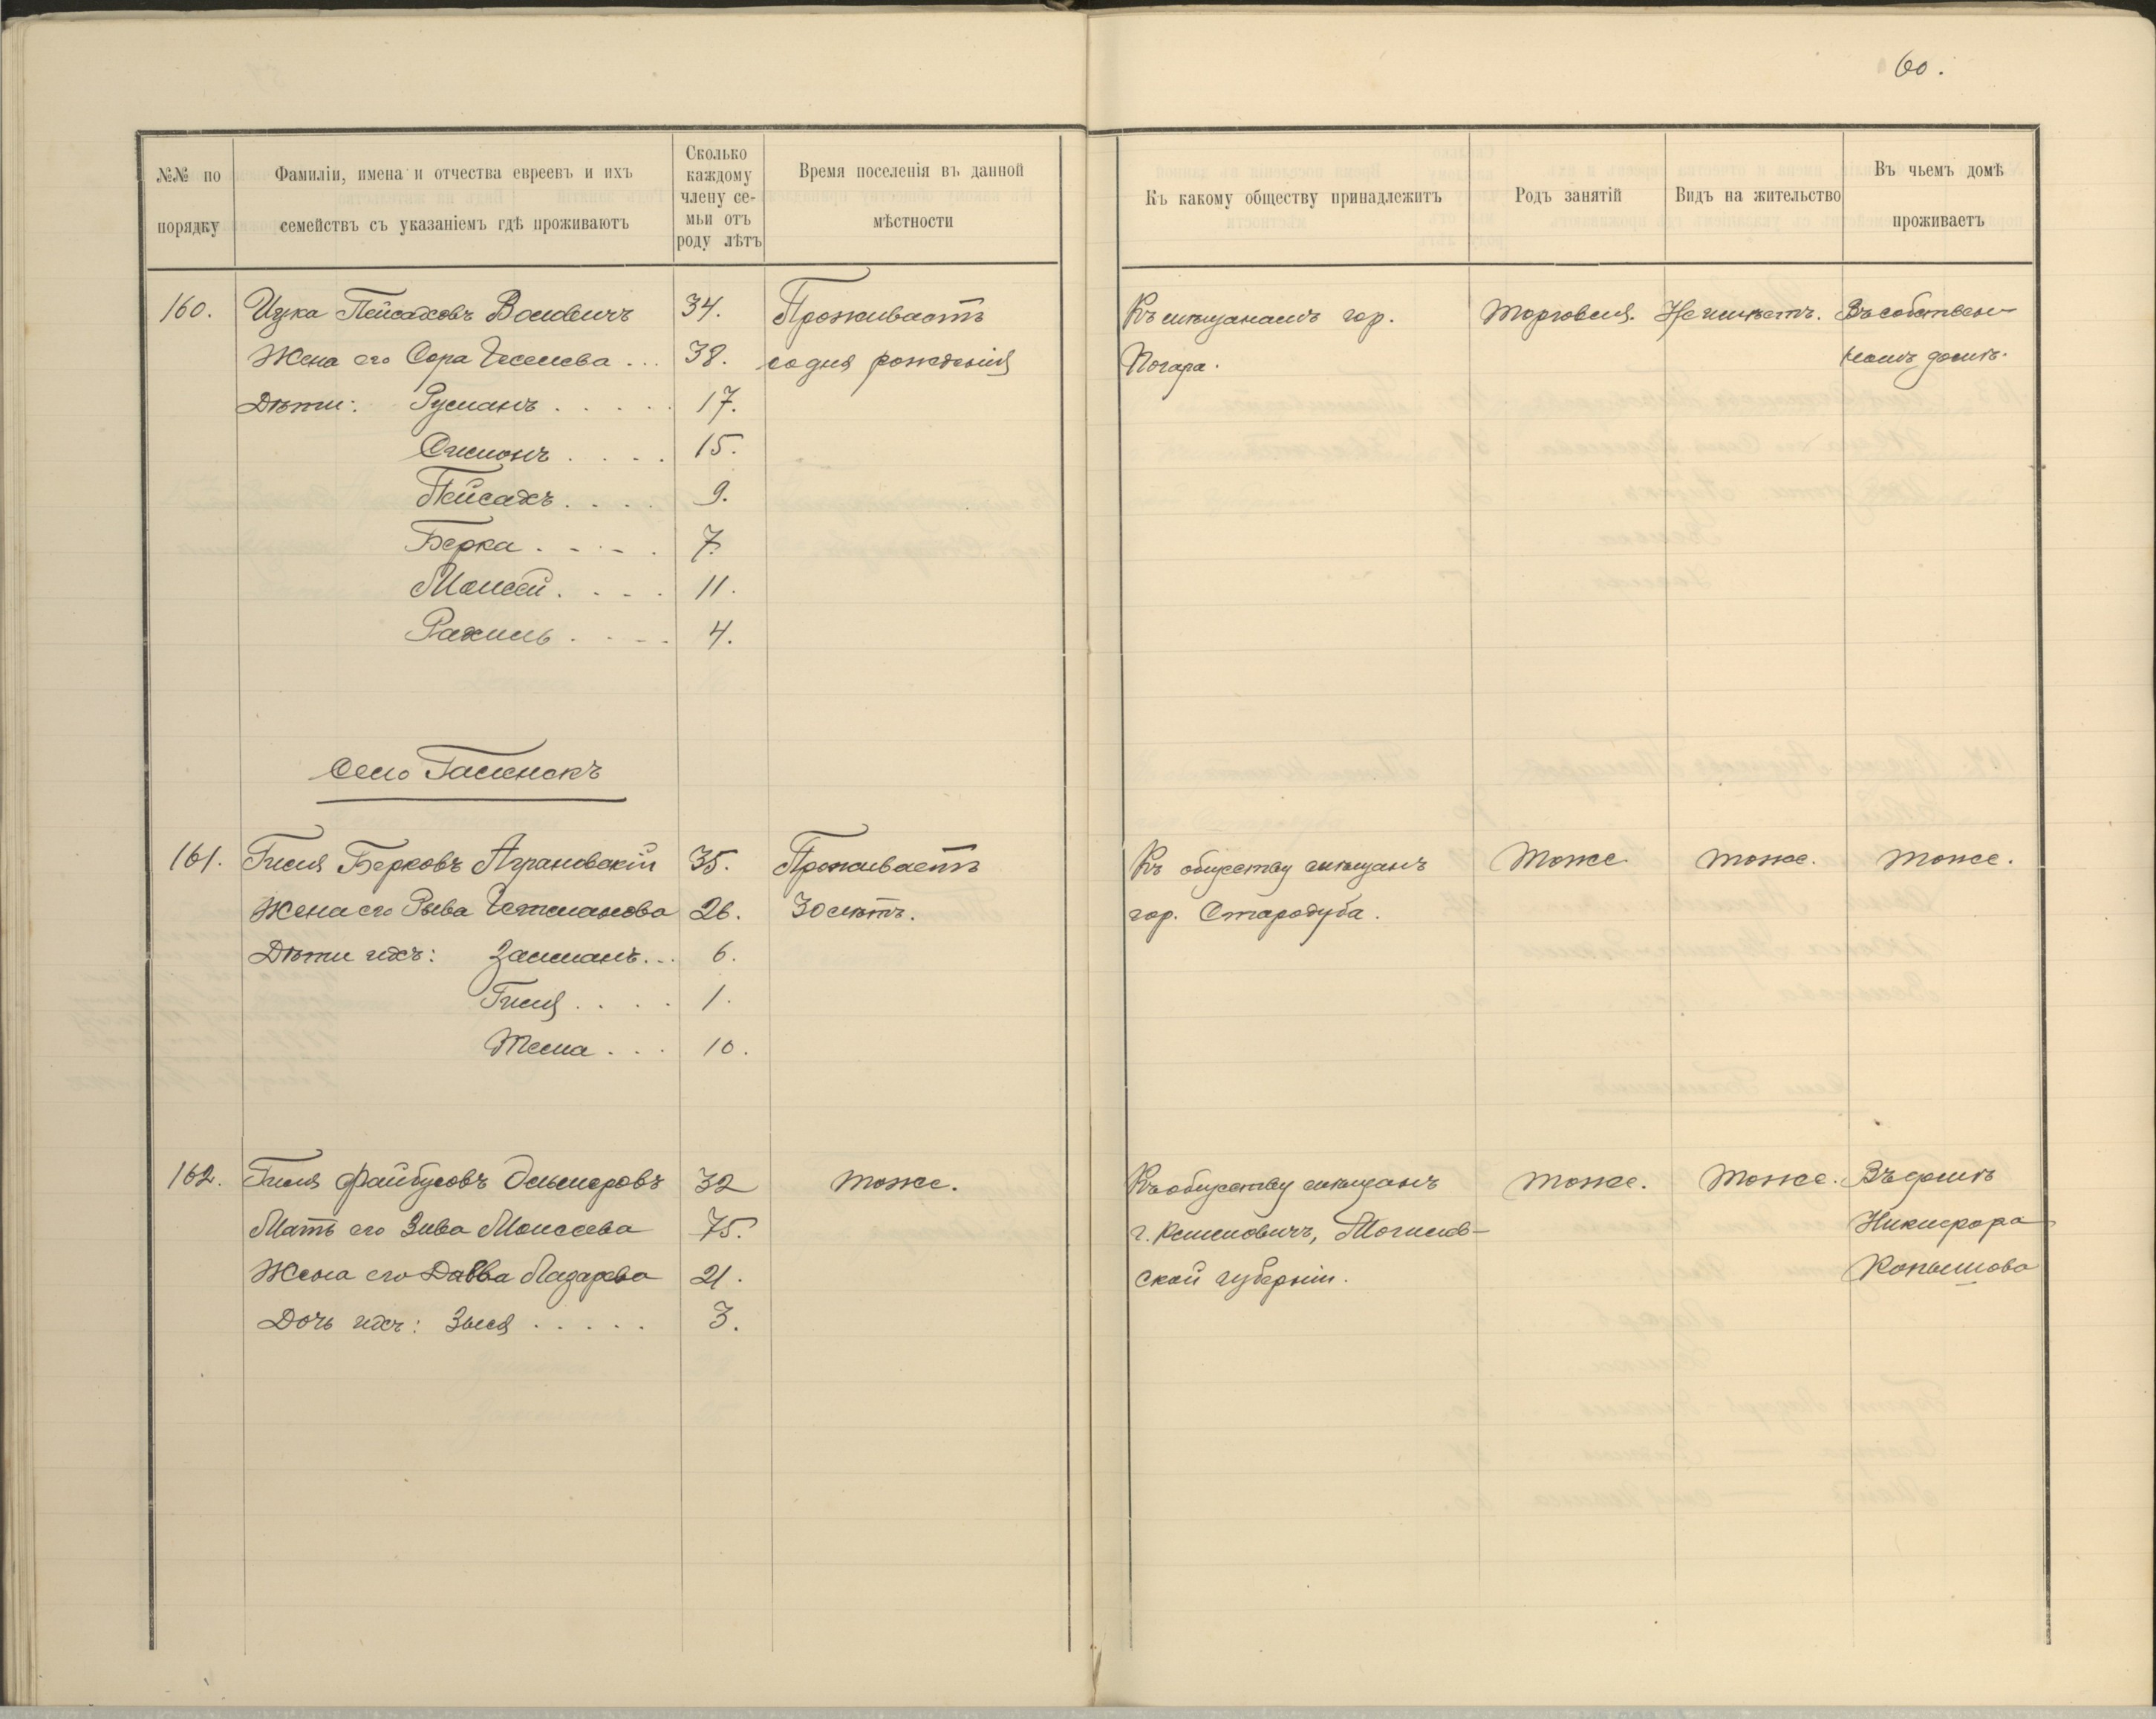 60.
№№ по порядку
Фамиліи, имена и отчества евреевъ и ихъ семействъ съ указаніемъ гдѣ проживаютъ
Сколько каждому члену семьи отъ роду лѣтъ
Время поселенія въ данной мѣстности
Къ какому обществу принадлежитъ
Родъ занятій
Видъ на жительство
Въ чьемъ домѣ проживаетъ
160. Ицка Пейсаховъ Волович 34. Проживаетъ Къ мѣщанамъ гор. Торговля. Неимѣетъ. Въ собствен-
Жена его Сора 38. со дня рожденія Погара. номъ домѣ.
Дѣти: Румань . . . . . 17.
Симонъ . . . . 15.
Пейсахъ . . . . 9.
Берка . . . . 7.
Моисей . . . . 11.
Рахиль . . . . 4.
Село Галенскъ
161. Гиля Берковъ Аграновскій 35. Проживаетъ Къ обществу мѣщанъ Тоже Тоже. Тоже.
Жена его Рыва 26. 30 лѣтъ. гор. Стародуба.
Дѣти ихъ: Залманъ . . . 6.
Гиля . . . . 1.
Тема . . . 10.
162. Гиля Файбусовъ 32 Тоже. Къ обществу мѣщанъ Тоже. Тоже. Въ домѣ
Мать его Зива Моисеева 75. г. Климовичъ, Могилев- Никифора
Жена его Лазарева 21. ской губерніи. Копылова
Дочь ихъ: Зыся . . . . . 3.